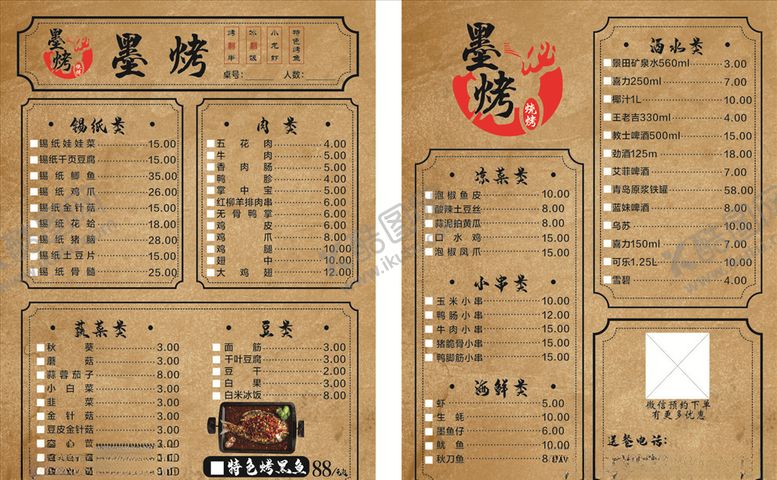 墨烤
烧烤
墨烤
烤翻半
冰飯
小龙虾
特色烤鱼
桌号: 人数:
锡纸类
锡纸娃娃菜 15.00
锡纸千页豆腐 15.00
锡纸鲫鱼 35.00
锡纸鸡爪 26.00
锡纸金针菇 15.00
锡纸花蛤 18.00
锡纸猪脑 28.00
锡纸土豆片 15.00
锡纸骨髓 25.00
肉类
五花肉 4.00
牛肉 5.00
香肉肠 5.00
鸭胗 4.00
掌中宝 5.00
红柳羊排肉串 6.00
无骨鸭掌 8.00
鸡皮 6.00
鸡爪 8.00
鸡腿 10.00
翅中 10.00
大鸡翅 12.00
蔬菜类
秋葵 3.00
蘑菇 3.00
蒜蓉茄子 8.00
小白菜 3.00
韭菜 3.00
金针菇 3.00
豆皮金针菇 3.00
3.00
3.00
豆类
面筋 3.00
千叶豆腐 3.00
豆干 2.00
白果 3.00
白米冰饭 8.00
特色烤黑鱼 88/
墨烤
烧烤
凉菜类
泡椒鱼皮 10.00
酸辣土豆丝 8.00
蒜泥拍黄瓜 8.00
口水鸡 15.00
泡椒凤爪 15.00
小串类
玉米小串 10.00
鸭肠小串 12.00
牛肉小串 15.00
猪脆骨小串 15.00
鸭脚筋小串 15.00
海鲜类
虾 5.00
生蚝 10.00
墨鱼仔 6.00
鱿鱼 10.00
秋刀鱼 15.00
酒水类
景田矿泉水560ml 3.00
喜力250ml 7.00
椰汁1L 10.00
王老吉330ml 4.00
教士啤酒500ml 15.00
劲酒125m 18.00
艾菲啤酒 7.00
青岛原浆铁罐 58.00
蓝妹啤酒 9.00
乌苏 10.00
喜力150ml 7.00
可乐1.25L 10.00
雪碧 4.00
微信预约下单
有更多优惠
送餐电话: